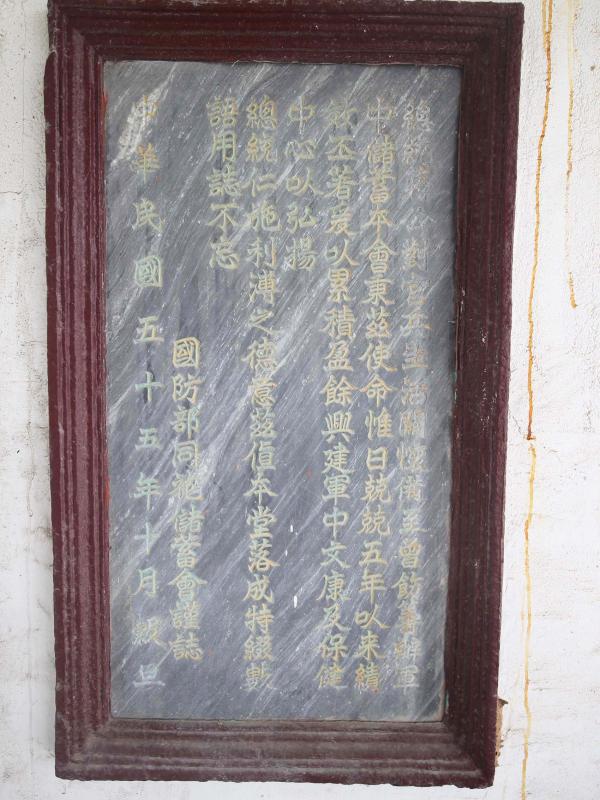 總統蔣公對官兵生活關懷備至曾飭籌辦軍
中儲蓄本會秉茲使命惟日兢兢五年以来績
效丕著爰以累積盈餘興建軍中文康及保健
中心以弘揚
總統仁施利溥之德意茲值本堂落成特綴數
語用誌不忘
國防部同袍儲蓄會謹誌
中華民國五十五年十月穀旦